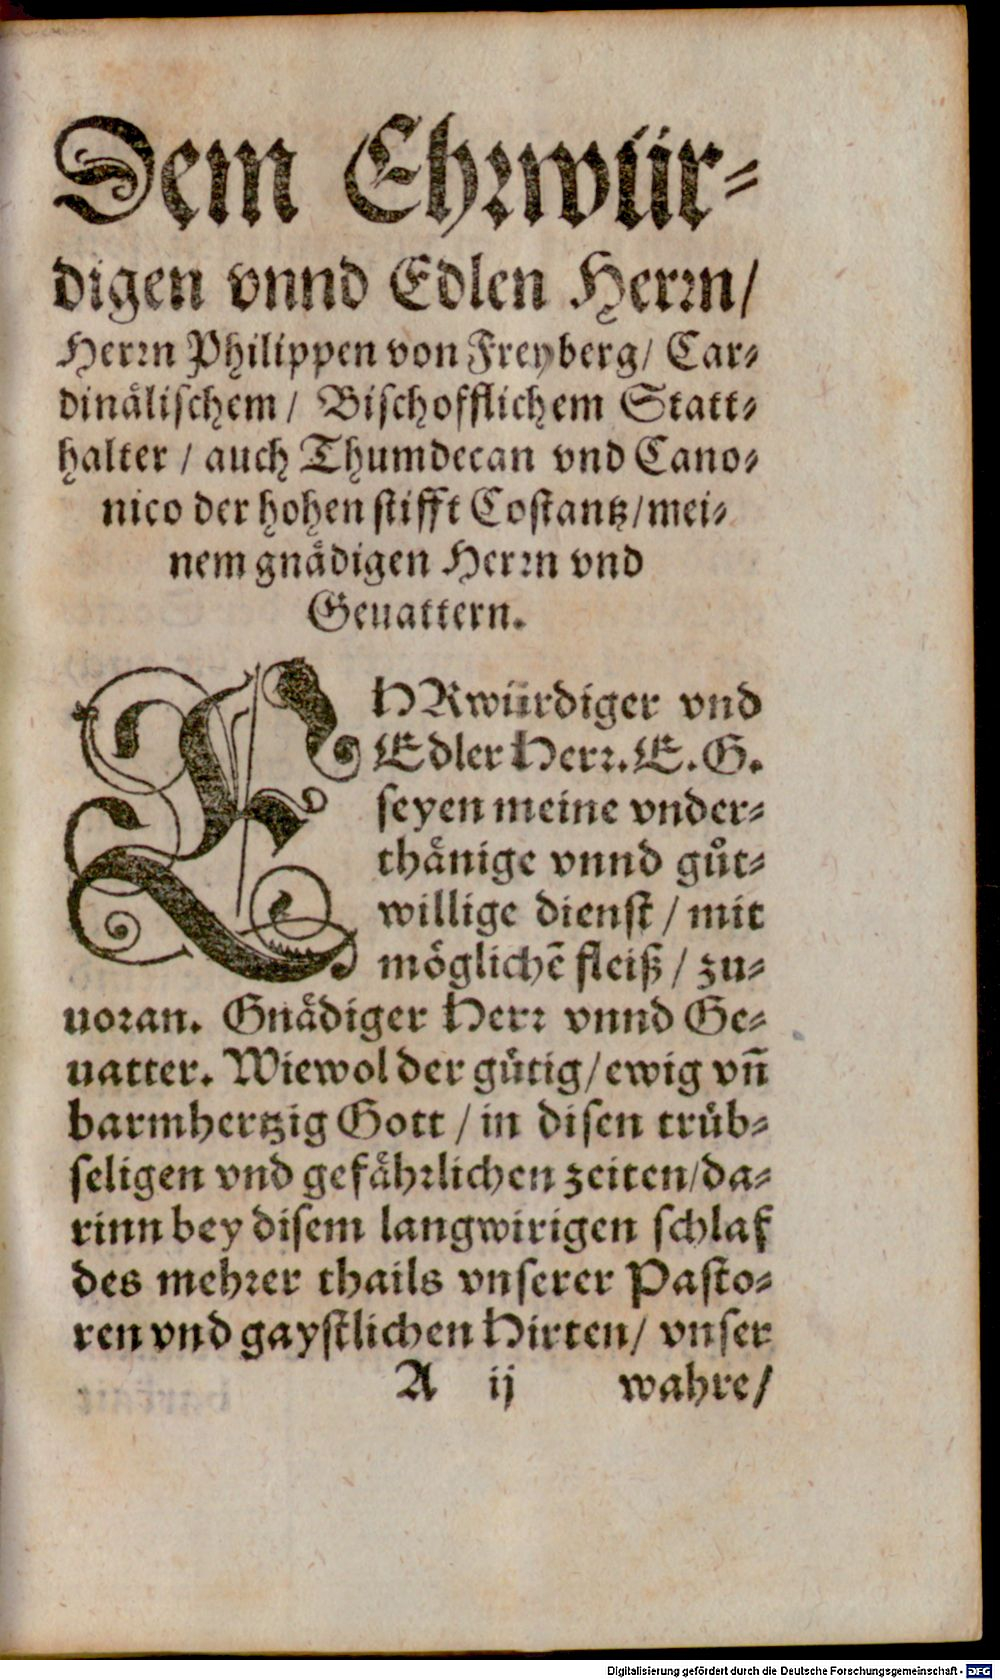 Dem Ehrwür-
digen vnnd Edlen Herrn/
Herrn Philippen von Freyberg/ Car-
dinälischem/ Bischofflichem Statt-
halter/ auch Thumdecan vnd Cano-
nico der hohen stifft Costantz/ mei-
nem gnädigen Herrn vnd
Geuattern.
EHRwürdiger vnd
Edler Herr. E. G.
seyen meine vnder-
thänige vnnd gůt-
willige dienst/ mit
möglichẽ fleiß/ zu-
uoran. Gnädiger Herr vnnd Ge-
uatter. Wiewol der gütig/ ewig vñ
barmhertzig Gott/ in disen trüb-
seligen vnd gefährlichen zeiten/ da-
rinn bey disem langwirigen schlaf
des mehrer thails vnserer Pasto-
ren vnd gaystlichen Hirten/ vnser
A ij wahre/
Digitalisierung gefördert durch die Deutsche Forschungsgemeinschaft - DFG